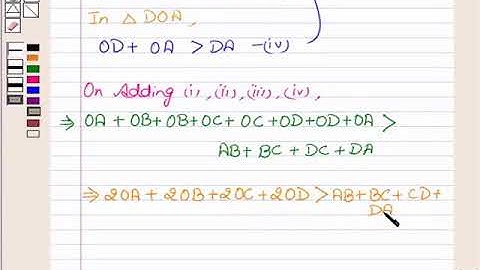 In △ DOA,
OD + OA > DA -(iv)
On Adding (i), (ii), (iii), (iv),
⇒ OA + OB + OB + OC + OC + OD + OD + OA >
AB + BC + DC + DA
⇒ 2OA + 2OB + 2OC + 2OD > AB + BC + CD +
DA